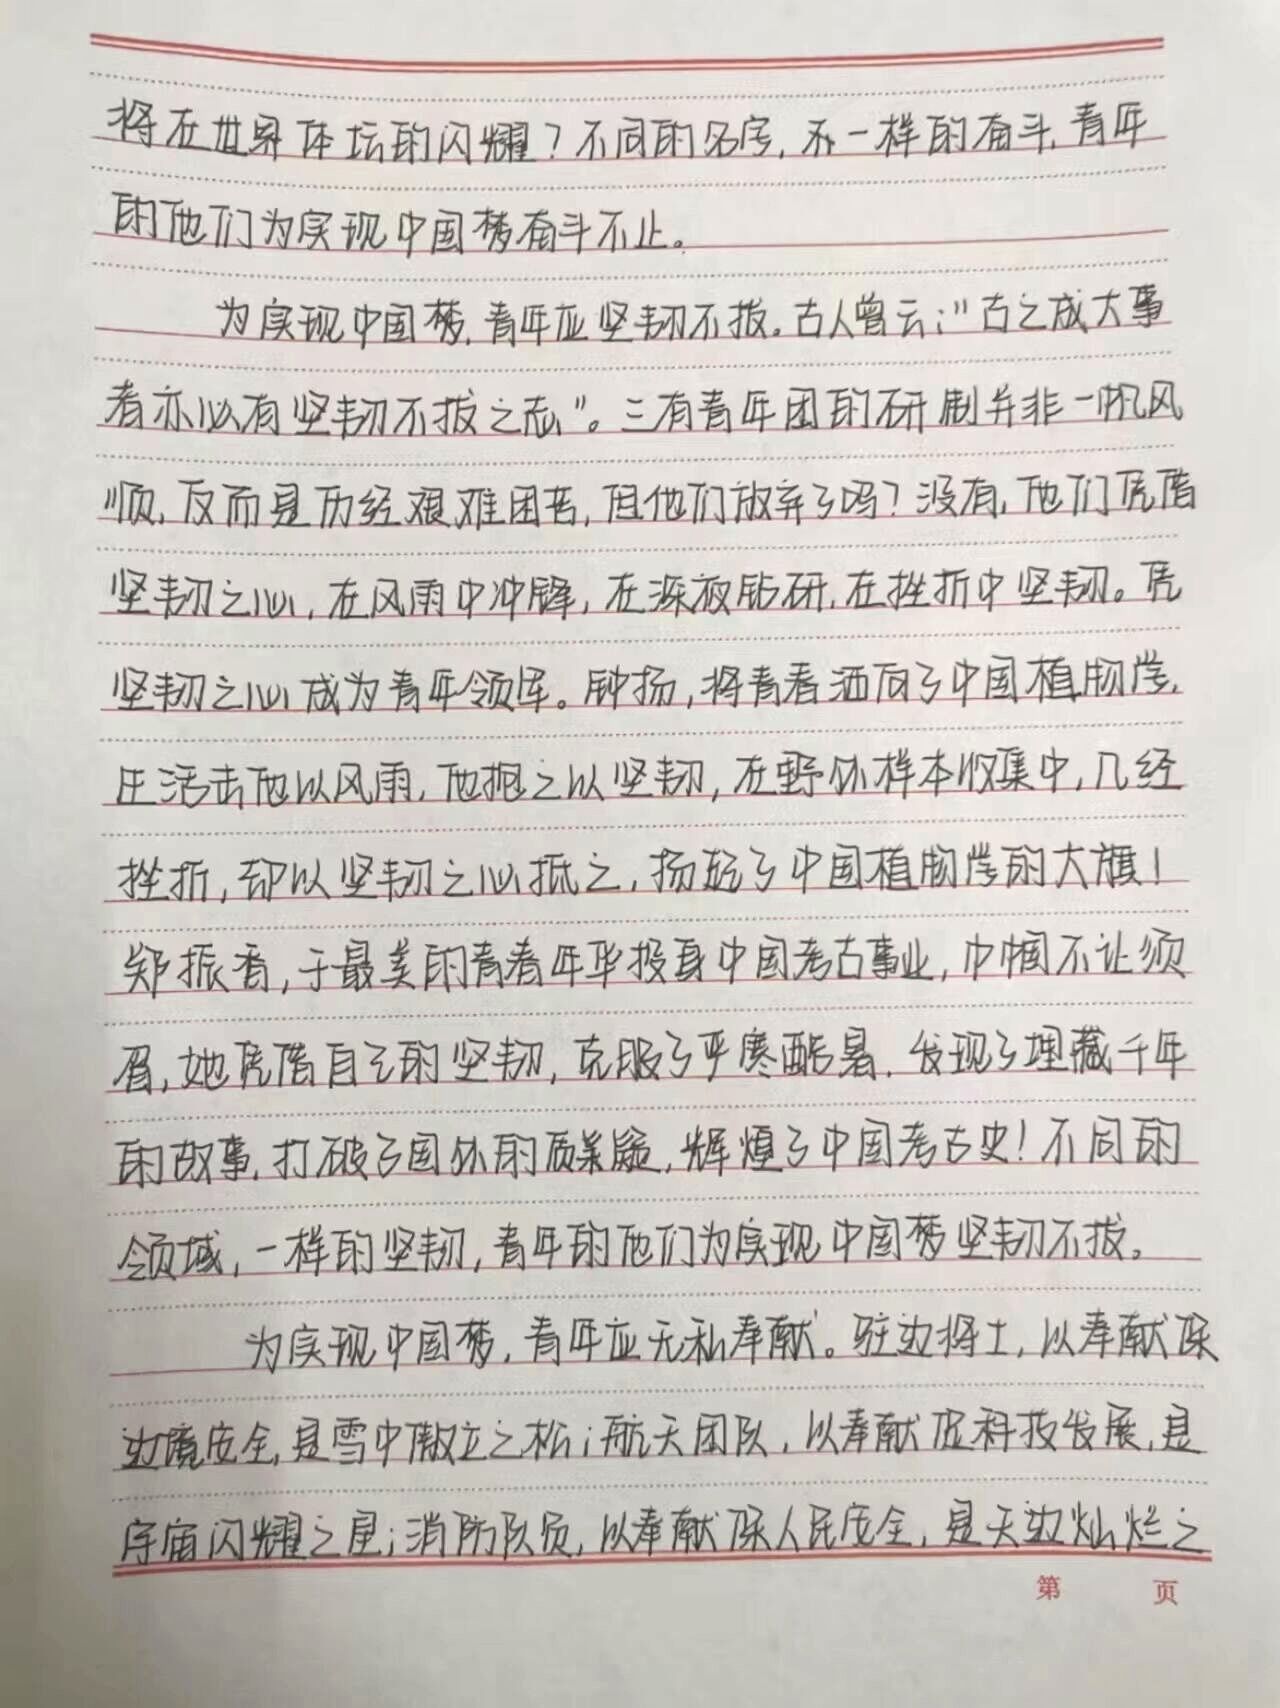 将在世界体坛的闪耀？不同的名字，不一样的奋斗，青年
的他们为实现中国梦奋斗不止。
为实现中国梦，青年应坚韧不拔。古人曾云：“古之成大事
者亦必有坚韧不拔之志”。三有青年团的研制并非一帆风
顺，反而是历经艰难困苦，但他们放弃了吗？没有，他们凭借
坚韧之心，在风雨中冲锋，在深夜钻研，在挫折中坚韧。凭
坚韧之心成为青年领军。钟扬，将青春洒向了中国植物学，
生活击他以风雨，他抱之以坚韧，在野外样本收集中，几经
挫折，却以坚韧之心抵之，扬起了中国植物学的大旗！
郑振香，于最美的青春年华投身中国考古事业，巾帼不让须
眉，她凭借自己的坚韧，克服了严寒酷暑，发现了埋藏千年
的故事，打破了国外的质疑，辉煌了中国考古史！不同的
领域，一样的坚韧，青年的他们为实现中国梦坚韧不拔。
为实现中国梦，青年应无私奉献。驻边将士，以奉献保
边境安全，是雪中傲立之松；航天团队，以奉献促科技发展，是
宇宙闪耀之星；消防队员，以奉献保人民安全，是天边灿烂之
第 页